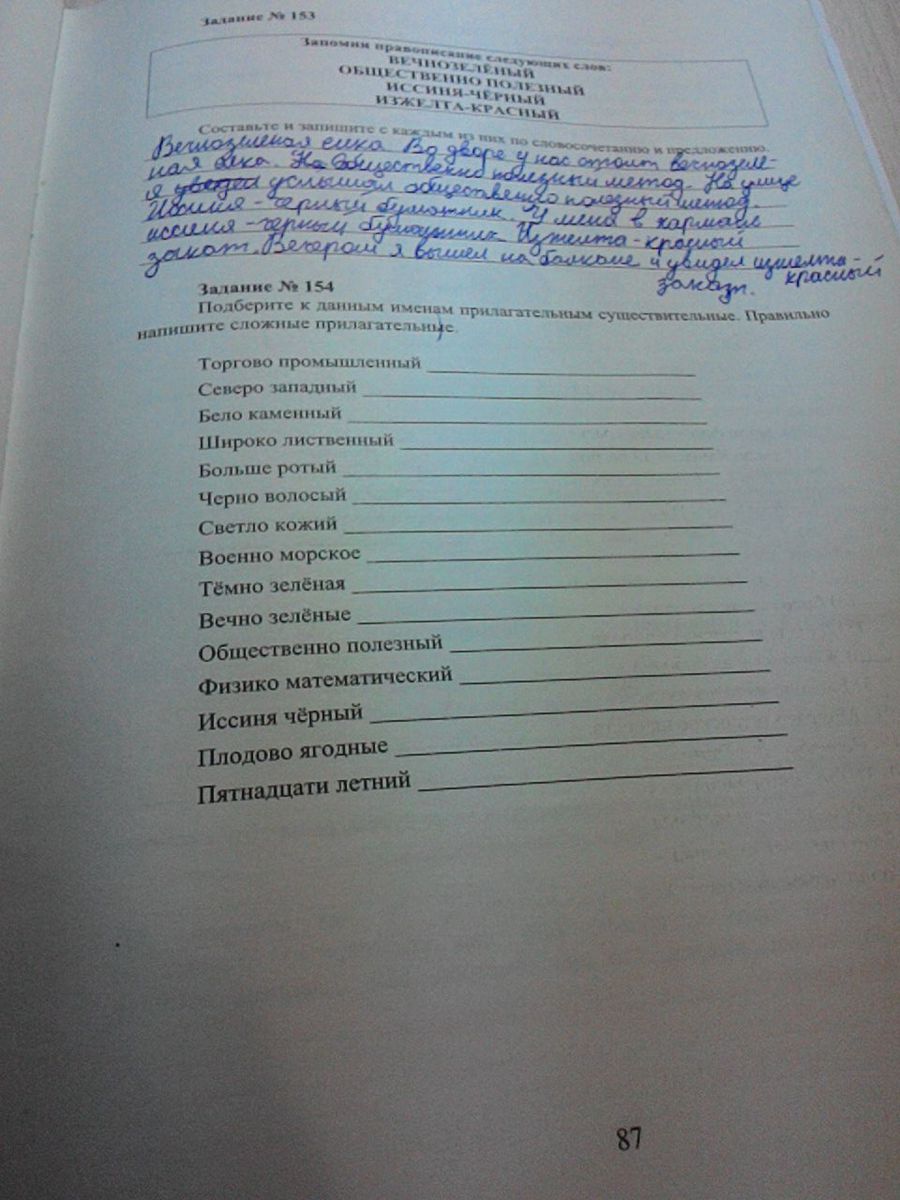 Задание № 153
Запомни правописание следующих слов:
ВЕЧНОЗЕЛЁНЫЙ
ОБЩЕСТВЕННО ПОЛЕЗНЫЙ
ИССИНЯ-ЧЁРНЫЙ
ИЗЖЕЛТА-КРАСНЫЙ
Составьте и запишите с каждым из них по словосочетанию и предложению.
Вечнозеленая елка. Во дворе у нас стоит вечнозеле-
ная елка. На Общественно полезный метод. На улице
я увидел услышал общественно полезный метод.
Иссиня-черный бумажник. У меня в кармане
иссиня-черный бумажник Изжелта-красный
закат. Вечером я вышел на балкон и увидел изжелта-
красный
закат.
Задание № 154
Подберите к данным именам прилагательным существительные. Правильно
напишите сложные прилагательные.
Торгово промышленный
Северо западный
Бело каменный
Широко лиственный
Больше ротый
Черно волосый
Светло кожий
Военно морское
Тёмно зелёная
Вечно зелёные
Общественно полезный
Физико математический
Иссиня чёрный
Плодово ягодные
Пятнадцати летний
87